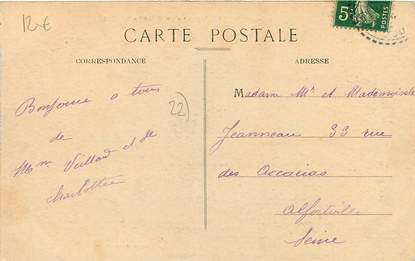 12€
CARTE POSTALE
CORRESPONDANCE
ADRESSE
5c
POSTES
Bonjour a tous
de
Mme Veillard et de
Charlotte
22
Madame Mr et Mademoiselle
Jeanneau 33 rue
des Accacias
Alfortville
Seine